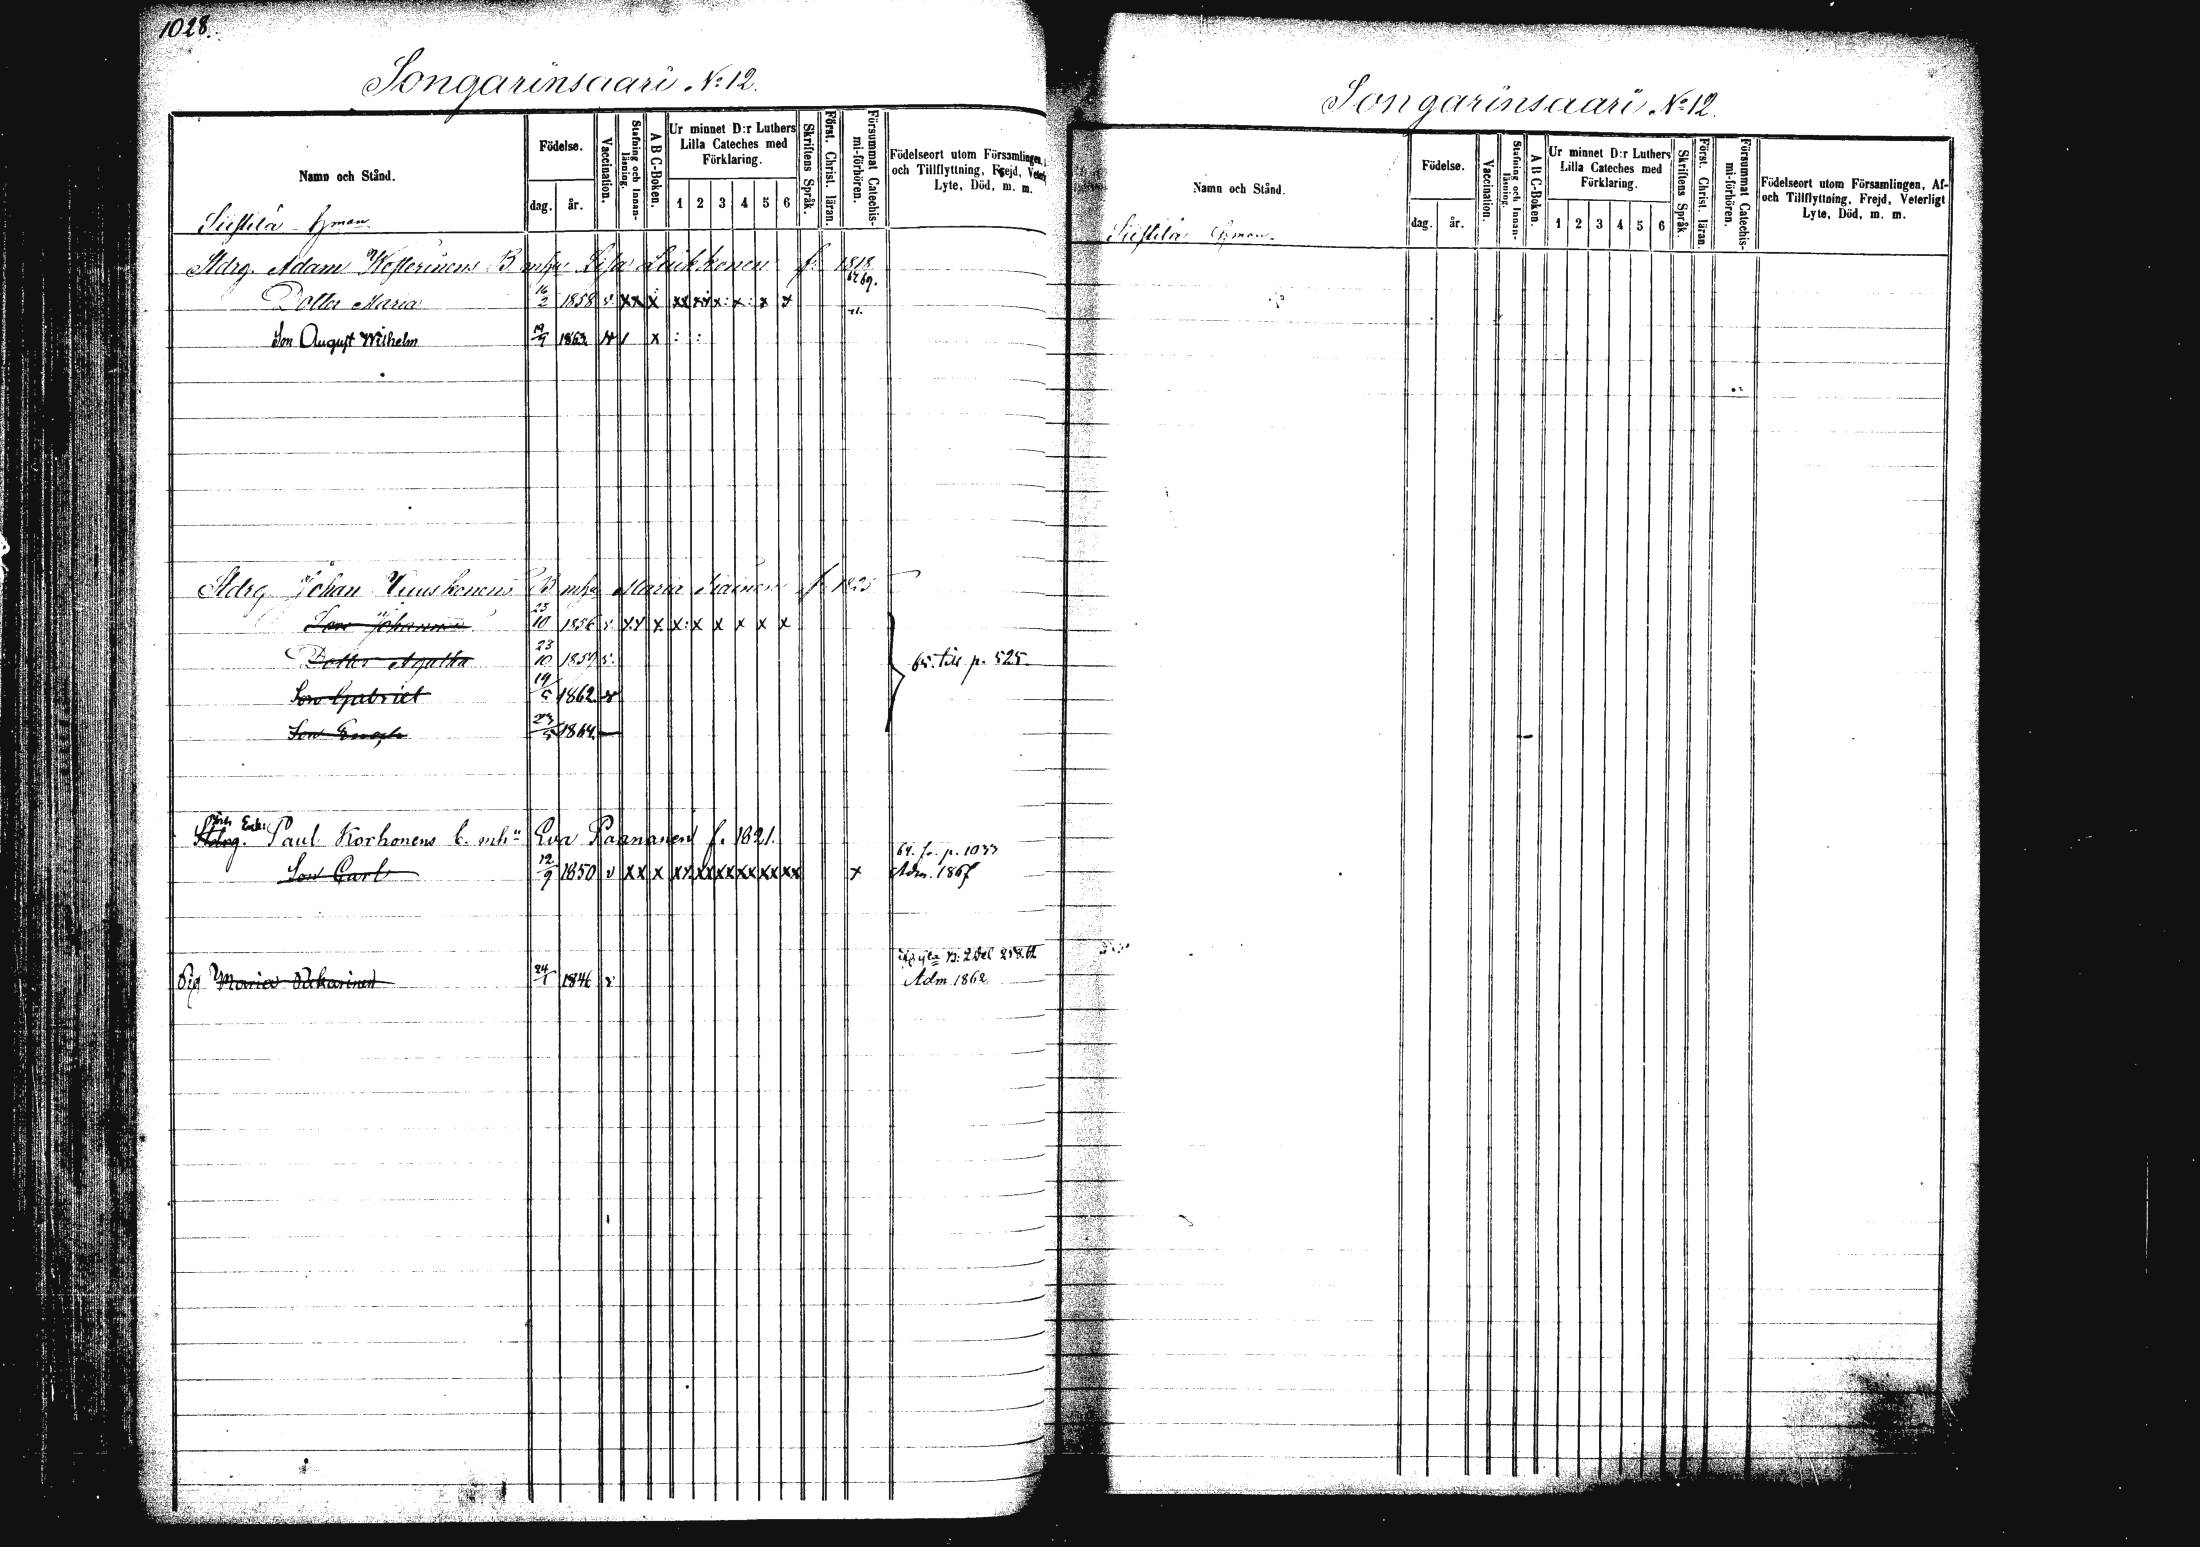 1028.
Songarinsaari No 12.
Namn och Stånd.
Födelse.
dag.
år.
Vaccination.
Stafning och Innanläsning.
A B C-Boken.
Ur minnet D:r Luthers Lilla Cateches med Förklaring.
1 2 3 4 5 6
Skriftens Språk.
Först. Christ. läran.
Försummat Catechismi-förhören.
Födelseort utom Församlingen,
och Tillflyttning, Frejd,
Lyte, Död, m. m.
Stdrg. Adam Westerinens B mhu Lisa Leikkonen f. 1818
Dotter Maria 16/2 1858 v xx x
Son August Wilhelm 19/9 1863
Stdrg Johan Vuuskonens B mhu Maria f. 1825
Son Johannes 23/10 1856 v
Dotter Agatha 23/10 1859 v.
65. till p. 525.
Son Gabriel 19/5 1862 v
Son Enoch 1864
Stdrg. Paul Korhonens b. mhu Eva Paananen f. 1821.
64. fr. p. 1033
Son Carl 12/9 1850 v xx x xx xx xx xx xx xx x Adm. 1867
2 Del 258.62
Pig Maria Pakarinen 24/1 1846 v Adm 1862
Songarinsaari No 12.
Namn och Stånd.
Födelse.
dag.
år.
Vaccination.
Stafning och Innanläsning.
A B C-Boken.
Ur minnet D:r Luthers Lilla Cateches med Förklaring.
1 2 3 4 5 6
Skriftens Språk.
Först. Christ. läran.
Försummat Catechismi-förhören.
Födelseort utom Församlingen, Af-
och Tillflyttning, Frejd, Veterligt
Lyte, Död, m. m.